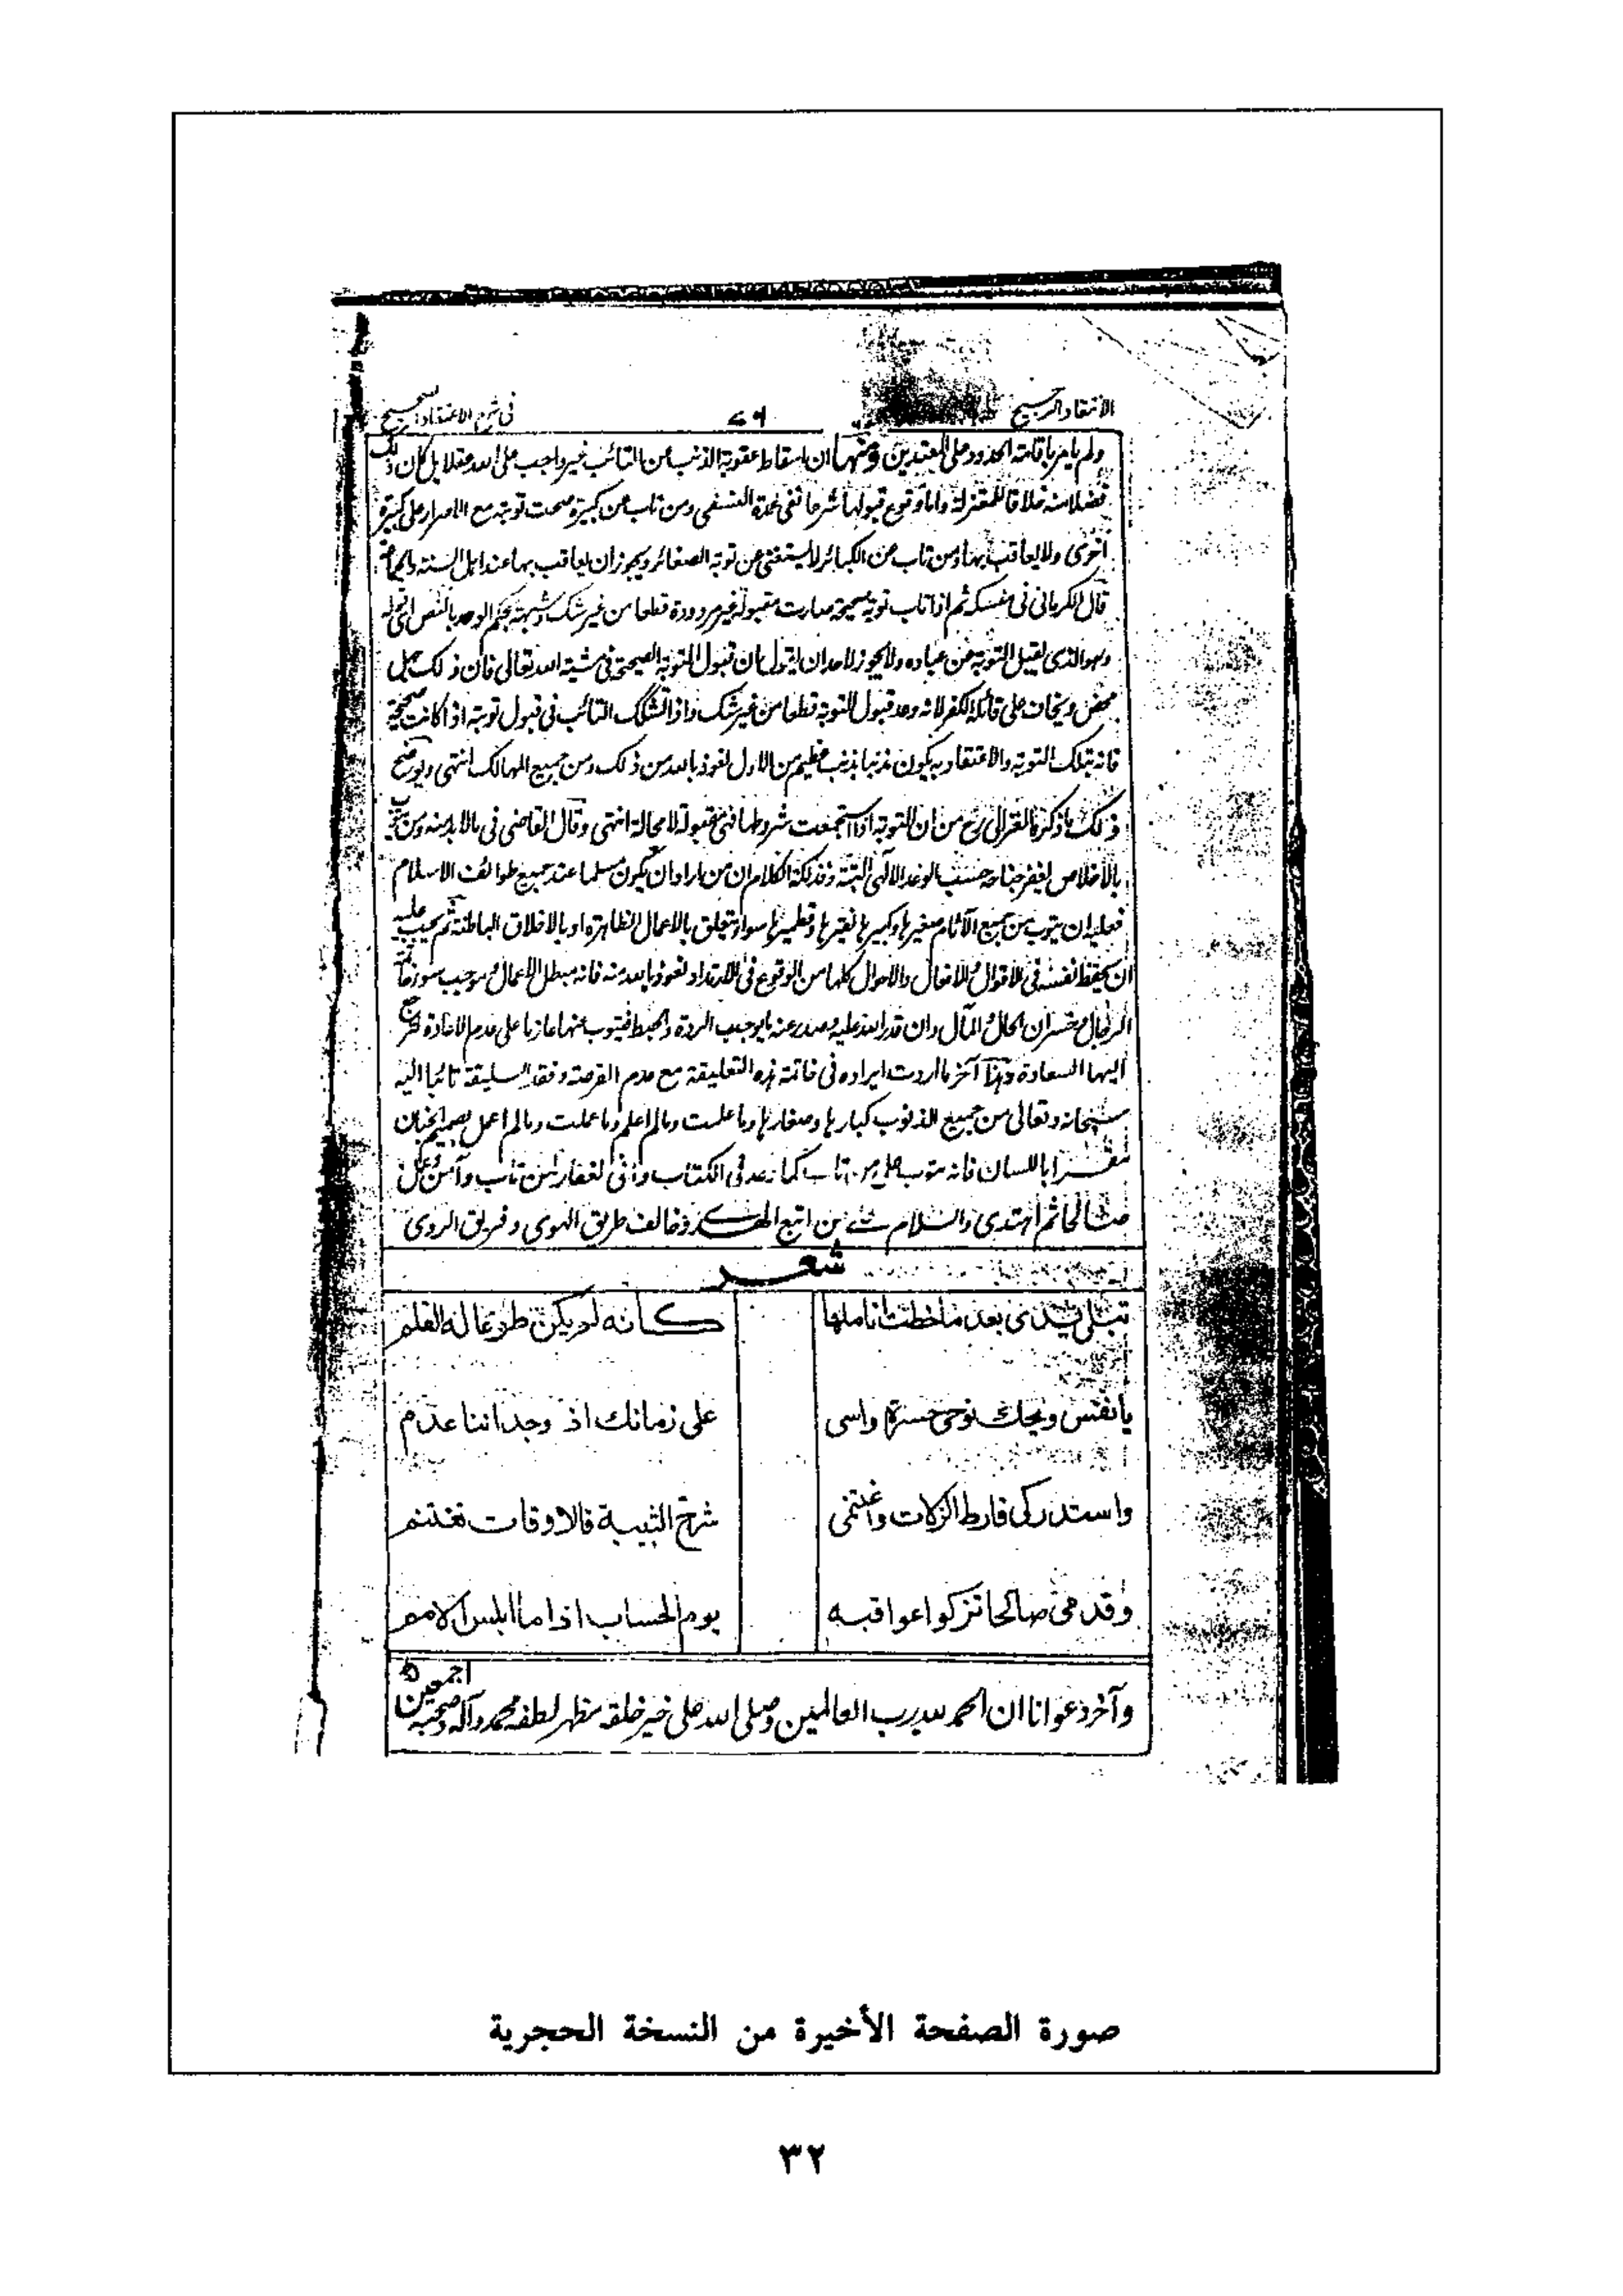 الانتقاد الرجيح
في شرح الاعتقاد الصحيح
ولم يامر باقامة الحدود على المعتدين ومنها ان اسقاط عقوبة الذنب عن التائب غير واجب على الله عقلا بل كان ذلك
فضلا منه خلافا للمعتزلة واما وقوع قبولها شرعا ففي عمدة النسفي ومن تاب عن كبيرة صحت توبته مع الاصرار على كبيرة
اخرى ولا يعاقب بها ومن تاب عن الكبائر لا يستغنى عن توبة الصغائر ويجوز ان يعاقب بها عند اهل السنة والجماعة
قال الكرماني في منسكه ثم اذا تاب توبة صحيحة صارت مقبولة غير مردودة قطعا من غير شك وشبهة بحكم الوعد بالنص اى قوله
وهو الذى يقبل التوبة عن عباده ولا يجوز لاحد ان يقول ان قبول التوبة الصحيحة في مشية الله تعالى فان ذلك جهل
محض ويخاف على قائله الكفر لانه وعد قبول التوبة قطعا من غير شك واذا تشكك التائب في قبول توبته اذا كانت صحيحة
فانه بتلك التوبة والاعتقاد به يكون مذنبا بذنب عظيم من الاول نعوذ بالله من ذلك ومن جميع المهالك انتهى ويوضح
ذلك ما ذكره الغزالى رح من ان التوبة اذا استجمعت شروطها فهي مقبولة لا محالة انتهى وقال القاضى فى مالا بد منه ومن يتوب
بالاخلاص يغفر جناحه حسب الوعد الالهى البتة وفذلكة الكلام ان من اراد ان يكون مسلما عند جميع طوائف الاسلام
فعليه ان يتوب من جميع الآثام صغيرها وكبيرها نقيرها وقطميرها سواء يتعلق بالاعمال الظاهرة او بالاخلاق الباطنة ثم يجب عليه
ان يحفظ نفسه في الاقوال والافعال والاحوال كلها من الوقوع فى الارتداد نعوذ بالله منه فانه مبطل الاعمال وموجب سوء خاتمة
الرجال وخسران الحال والمآل وان قدر الله عليه وصدر عنه ما يوجب الردة والحبط فيتوب عنها عازما على عدم الاعادة ليرجع
اليها السعادة وهذا آخر ما اردت ايراده في خاتمة هذه التعليقة مع عدم الفرصة وفقد السليقة تائبا اليه
سبحانه وتعالى من جميع الذنوب كبارها وصغارها وما علمت وما لم اعلم وما عملت وما لم اعمل بصميم الجنان
مقرا باللسان فانه يتوب على من تاب كما وعد فى الكتاب وانى لغفار لمن تاب وآمن وعمل
صالحا ثم اهتدى والسلام على من اتبع الهدى وخالف طريق الهوى وفريق الردى
شعر
تبلى يدى بعد ما خطت اناملها كانه لم يكن طوعا له القلم
يا نفس ويحك نوحى حسرة واسى على زمانك اذ وجداننا عدم
واستدركى فارط الزلات واغتنمى شرخ الشبيبة فالاوقات تغتنم
وقدمى صالحا تزكوا عواقبه يوم الحساب اذا ما ابلس الامم
وآخر دعوانا ان الحمد لله رب العالمين وصلى الله على خير خلقه مظهر لطفه محمد وآله وصحبه
اجمعين
صورة الصفحة الأخيرة من النسخة الحجرية
٣٢